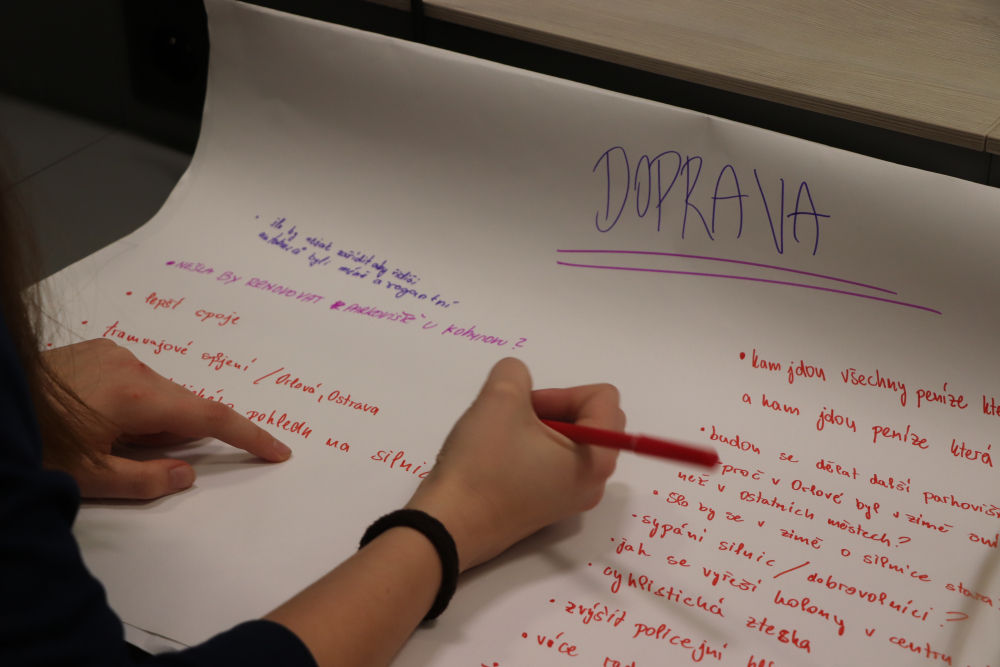 DOPRAVA
• šlo by nějak zařídit aby řidiči
autobusů byli méně arogantní
• NEŠLA BY RENOVOVAT PARKOVIŠTĚ U KOHYNOOU?
• lepší spoje
• tramvajové spojení / Orlová, Ostrava
pohledu na silnic
• kam jdou všechny peníze kte
a kam jdou peníze která
• budou se dělat další parkoviš
proč v Orlové byl v zimě
než v ostatních městech?
• šlo by se v zimě o silnice stara
• sypání silnic / dobrovolníci?
• jak se vyřeší kolony v centru
• cyklistická ztezka
• zvýšit policejní hlí
• více rad